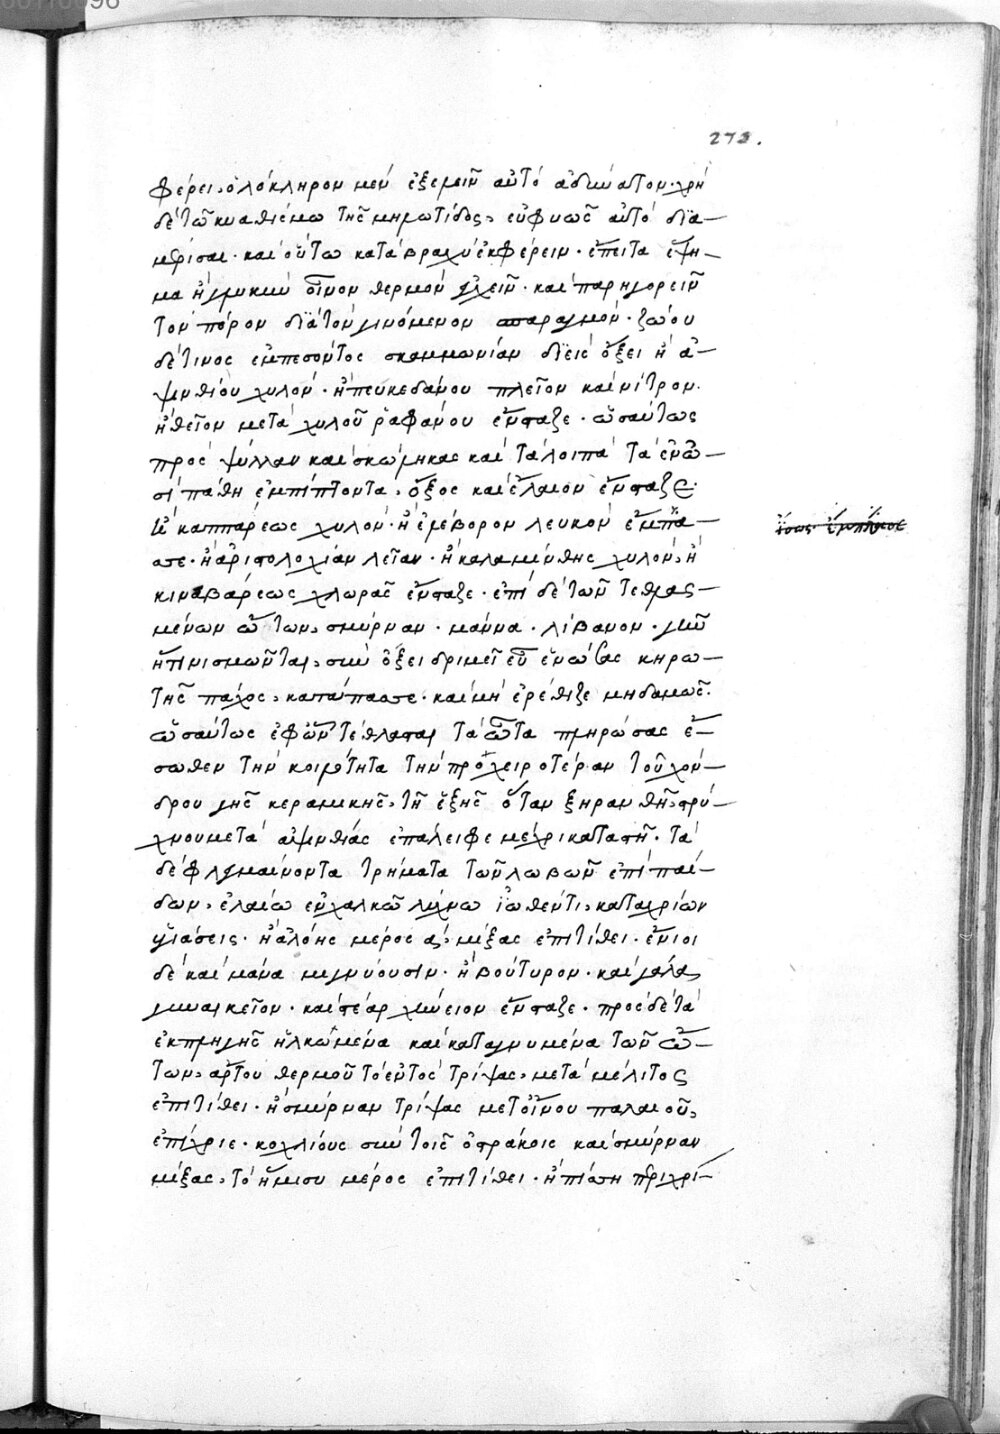 273.
φέρει, ὁλόκληρον μὲν ἐξελεῖν αὐτὸ ἀδύνατον· χρὴ
δὲ τῶ κυαθίσκω τῆς μηλωτίδος, εὐφυῶς αὐτὸ δια–
μερίσαι· καὶ οὕτω κατὰ βραχὺ ἐκφέρειν· ἔπειτα ἕψη–
μα ἢ γλυκὺν οἶνον θερμὸν ἐγχεῖν· καὶ παρηγορεῖν
τὸν πόρον διὰ τὸν γινόμενον σπαραγμὸν· ζώου
δέ τινος ἐμπεσόντος σκαμμωνίαν διεὶς ὄξει ἢ ἀ–
ψινθίου χυλὸν· ἢ πευκεδάνου πλεῖον καὶ νίτρον·
ἢ θεῖον μετὰ χυλοῦ ῥαφάνου ἔνσταξε· ὡσαύτως
πρὸς ψύλλαν καὶ σκώληκας καὶ τὰ λοιπὰ τὰ ἐν ὠ–
σὶ πάθη ἐμπίπτοντα, ὄξος καὶ ἔλαιον ἔνσταξε·
ἢ καππάρεως χυλὸν· ἢ ἐλέβορον λευκὸν ἔμπα–
σσε· ἢ ἀριστολοχίαν λεῖαν· ἢ καλαμίνθης χυλὸν, ἢ
κιναβάρεως χλωρᾶς ἔνσταξε· ἐπὶ δὲ τῶν τεθλας–
μένων ὤτων, σμύρναν· μάννα· λίβανον· γῆν
ᾗ πινισμῶνται, σὺν ὄξει δριμεῖ εὖ ἑνώσας κηρω–
τῆς πάχος, κατάπασσε· καὶ μὴ ἐρέθιζε μηδαμῶς·
ὡσαύτως ἐφ' ὧν τέθλασται τὰ ὦτα πληρώσας ἔ–
σωθεν τὴν κοιλότητα τὴν προχειροτέραν τοῦ χόν–
δρου γῆς κεραμικῆς, τῆ ἑξῆς ὅταν ξηρανθῆ, στρύ–
χνου μετὰ ἀψινθίας ἐπάλειφε μέχρι καταστῆ· τὰ
δὲ φλεγμαίνοντα τρήματα τῶν λοβῶν ἐπὶ παί–
δων, ἐλαίω ἐν χαλκῶ λύχνω ἰωθέντι, καταχρίων
ὑγιάσεις· ἢ ἀλόης μέρος α, μίξας ἐπιτίθει· ἔνιοι
δὲ καὶ μάνα μιγνύουσιν· ἢ βούτυρον· καὶ γάλα
γυναικεῖον· καὶ στέαρ χήνειον ἔνσταξε· πρὸς δὲ τὰ
ἐκ πληγῆς ἡλκωμένα καὶ καταγνυμένα τῶν ὤ–
των, ἄρτου θερμοῦ τὸ ἐντὸς τρίψας, μετὰ μέλιτος
ἐπιτίθει· ἢ σμύρναν τρίψας μετ' οἴνου παλαιοῦ,
ἐπίχριε· κοχλίους σὺν τοῖς ὀστράκοις καὶ σμύρναν
μίξας, τὸ ἥμισυ μέρος ἐπιτίθει· ἢ πίσση περιχρί–